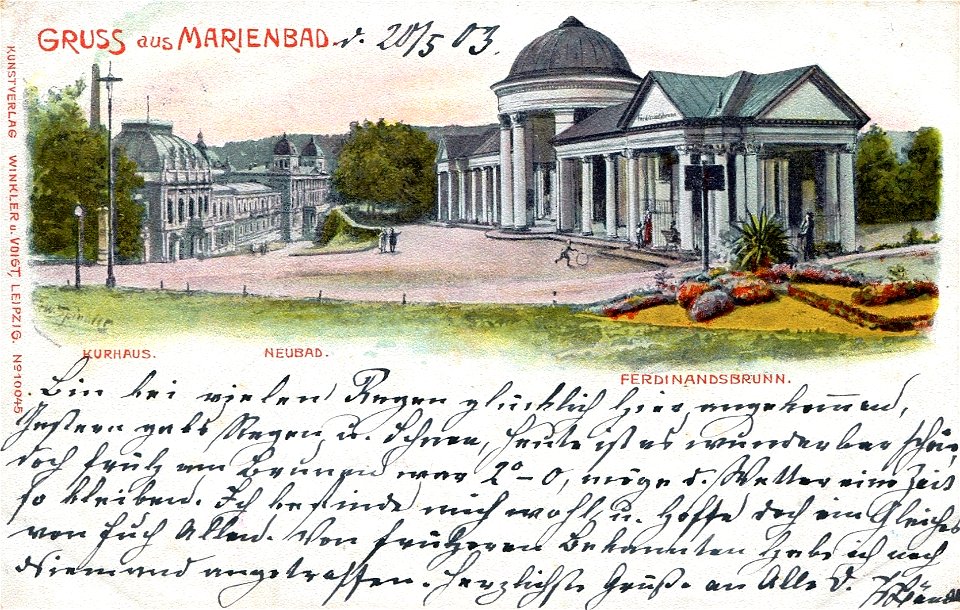 GRUSS aus MARIENBAD d. 20/5 03.
KUNSTVERLAG WINKLER u. VOIGT, LEIPZIG. No 10045
Ferdinandsbrunn
KURHAUS.
NEUBAD.
FERDINANDSBRUNN.
Bin bei vielen Regen glücklich hier angekommen,
Gestern gabs Regen u. Schnee, heute ist es wunderbar schön,
doch früh am Brunnen war 2°-0, möge d. Wetter eine Zeit
so bleiben. Ich befinde mich wohl, u. hoffe doch ein Gleiches
von Euch Allen. Von früheren Bekannten habe ich noch
Niemand angetroffen. Herzlichste Grüße an Alle d.